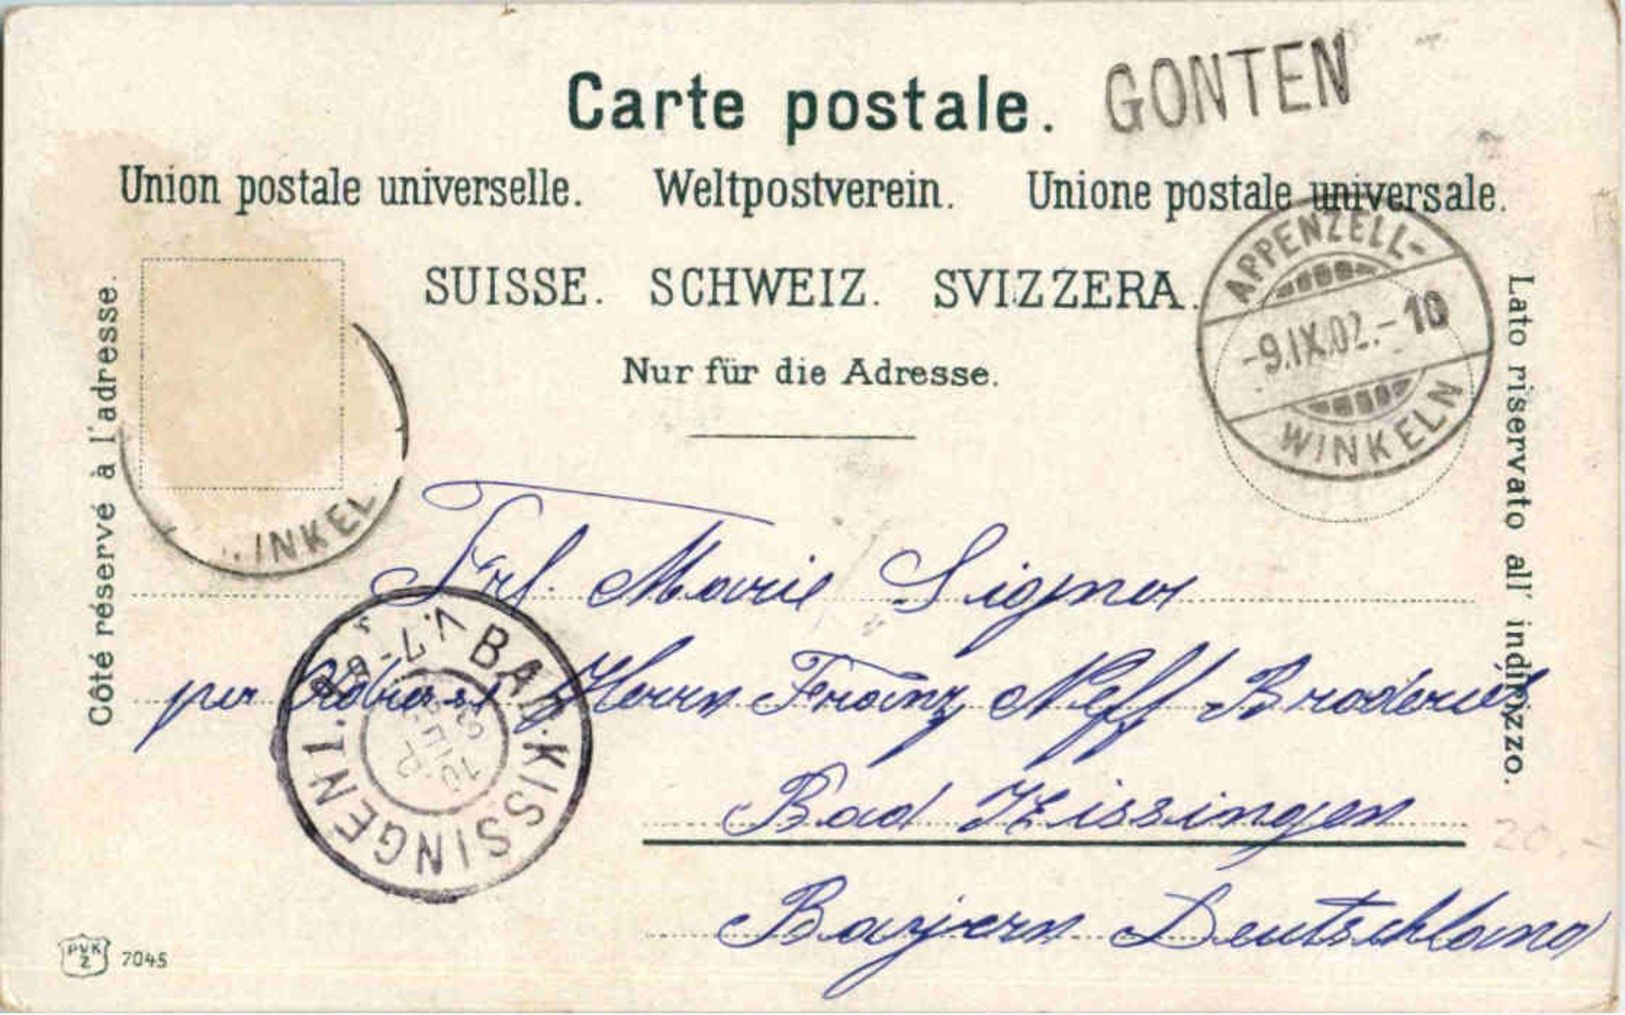 Carte postale. GONTEN
Union postale universelle. Weltpostverein. Unione postale universale.
SUISSE. SCHWEIZ. SVIZZERA.
Nur für die Adresse.
Côté réservé à l'adresse.
Lato riservato all' indirizzo.
APPENZELL-
-9.IX.02.-10
WINKELN
INKEL
Frl. Marie Signer
per Adresse Herrn Franz Neff Broderies
Bad Kissingen
Bayern Deutschland
BAD KISSINGEN 1.
V. 7-8
10
SEP
20.-
PVK
Z
7045